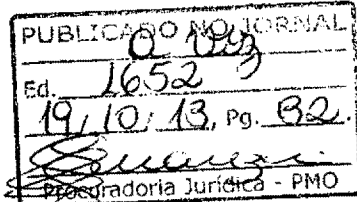 PUBLICADO NO JORNAL
Ed. 1652
19, 10, 13, Pg. B2.
Procuradoria Jurídica - PMO